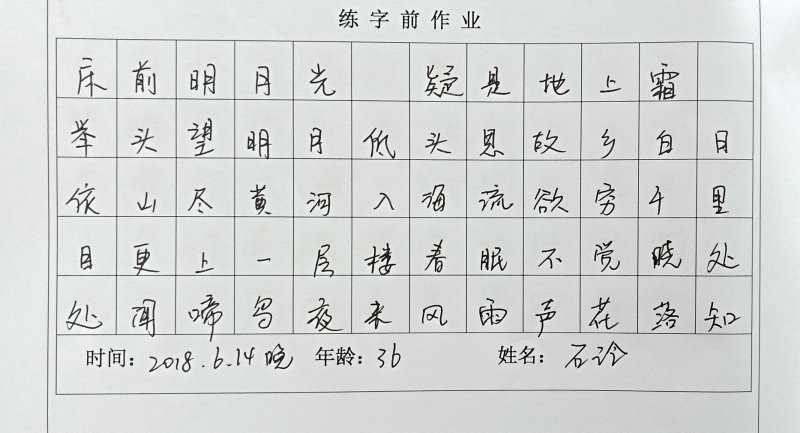 练字前作业
床前明月光 疑是地上霜
举头望明月低头思故乡白日
依山尽黄河入海流欲穷千里
目更上一层楼春眠不觉晓处
处闻啼鸟夜来风雨声花落知
时间：2018.6.14晚 年龄：36 姓名：石